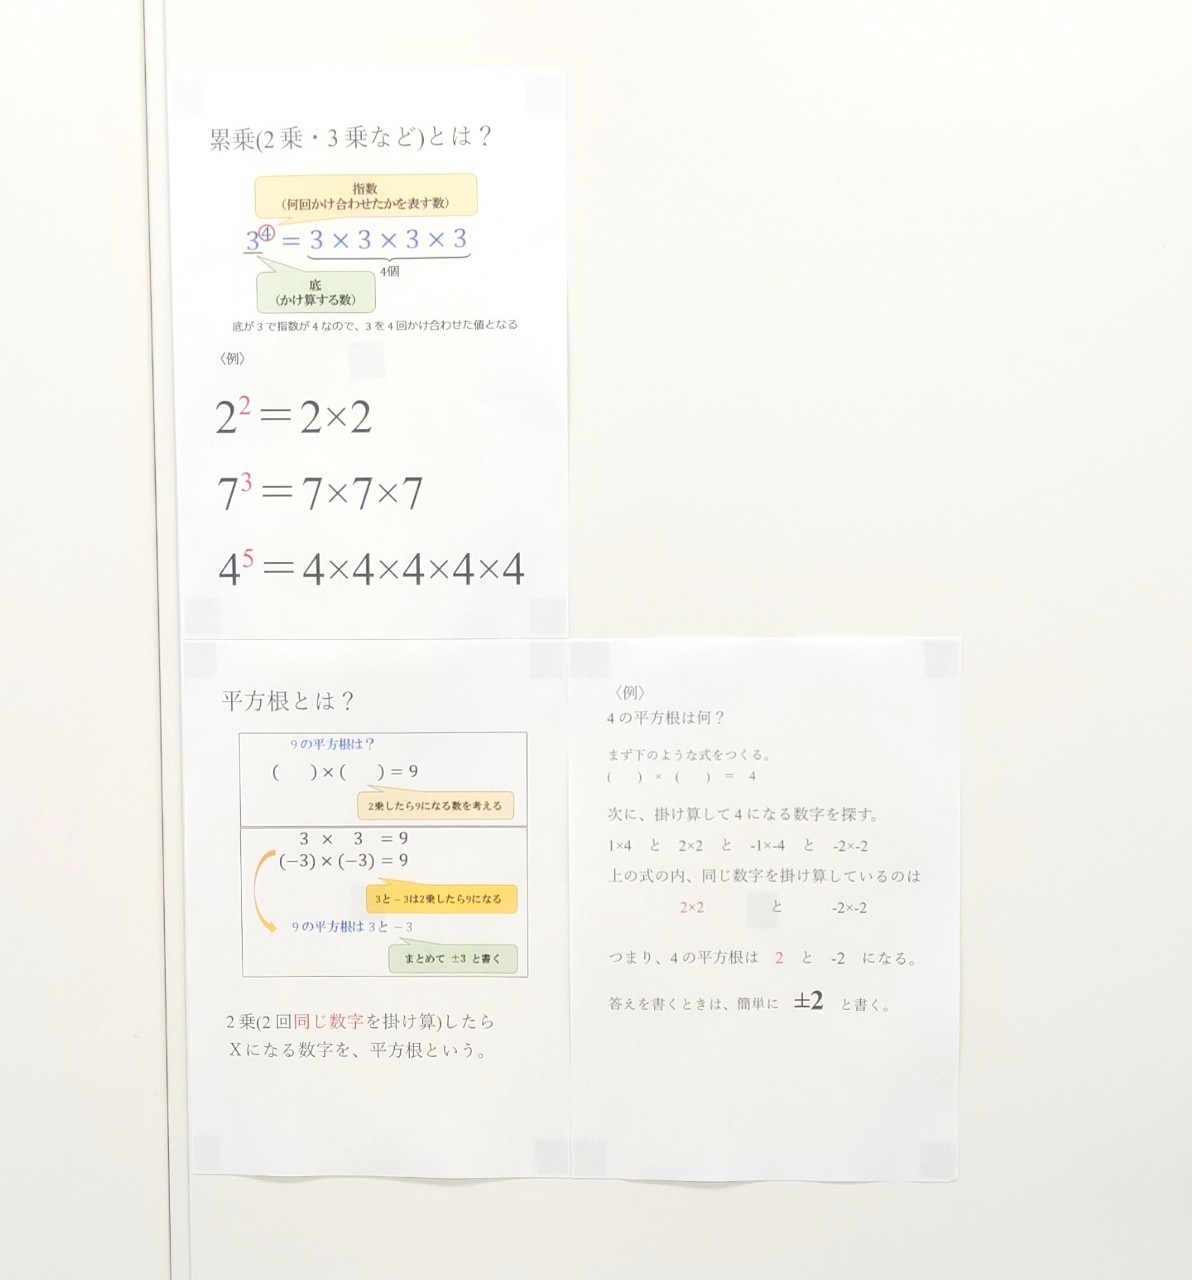 累乗(2乗・3乗など)とは？
指数
(何回かけ合わせたかを表す数)
3④ = 3 × 3 × 3 × 3
4個
底
(かけ算する数)
底が3で指数が4なので、3を4回かけ合わせた値となる
〈例〉
2²＝2×2
7³＝7×7×7
4⁵＝4×4×4×4×4
平方根とは？
9の平方根は?
(　)×(　)= 9
2乗したら9になる数を考える
3 × 3 = 9
(−3) × (−3) = 9
3と－3は2乗したら9になる
9の平方根は3と－3
まとめて ±3 と書く
2乗(2回同じ数字を掛け算)したら
Xになる数字を、平方根という。
〈例〉
4の平方根は何？
まず下のような式をつくる。
(　) × (　) = 4
次に、掛け算して4になる数字を探す。
1×4 と 2×2 と -1×-4 と -2×-2
上の式の内、同じ数字を掛け算しているのは
2×2 と -2×-2
つまり、4の平方根は 2 と -2 になる。
答えを書くときは、簡単に ±2 と書く。